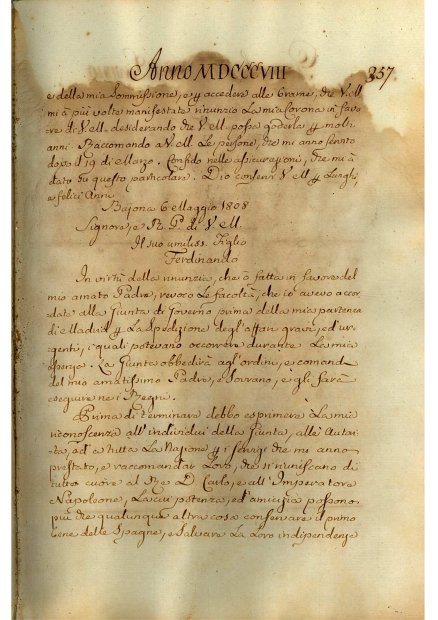 Anno MDCCCVIII 357
e della mia Sommissione, e per accedere alle brame, che V. M.
mi à più volte manifestate rinunzio La mia Corona in favo
re di V. M. desiderando che V. M. possa goderla per molti
anni. Raccomando a V. M. Le persone, che mi anno servito
dopo il 19 di Marzo. Confido nelle assicurazioni, che mi à
dato su questo particolare. Dio conservi V. M. per Lunghi,
e felici Anni
Bajona 6 Maggio 1808
Signore, e R. P. di V. M.
Il suo umiliss. Figlio
Ferdinando
In virtù della rinunzia, che ò fatta in favore del
mio amato Padre, revoco Le facoltà, che io avevo accor
date alla Giunta di Governo prima della mia partenza
di Madrid per La Spedizione degl'affari gravi, ed ur
genti, i quali potevano occorrere durante La mia
assenza. La Giunta obbedirà agl'ordini, e comandi
del mio amatissimo Padre, e Sovrano, e gli farà
eseguire ne i Regni.
Prima di terminare debbo esprimere La mia
riconoscenza all'individui della Giunta, alle Autori
tà, ed a tutta La Nazione per i servigi che mi anno
prestato, e raccomandar Loro, che si riuniscano di
tutto cuore al Re D. Carlo, e all'Imperatore
Napoleone, La cui potenza, ed amicizia possono
più che qualunque altra cosa conservare il primo
bene delle Spagne, e Salvare La Loro independenza